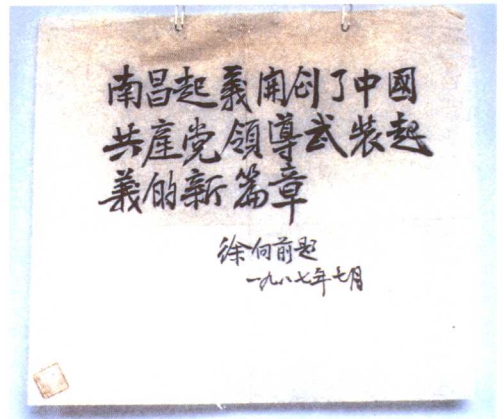 南昌起義開创了中國
共產党領導武裝起
義的新篇章
徐向前题
一九八七年七月